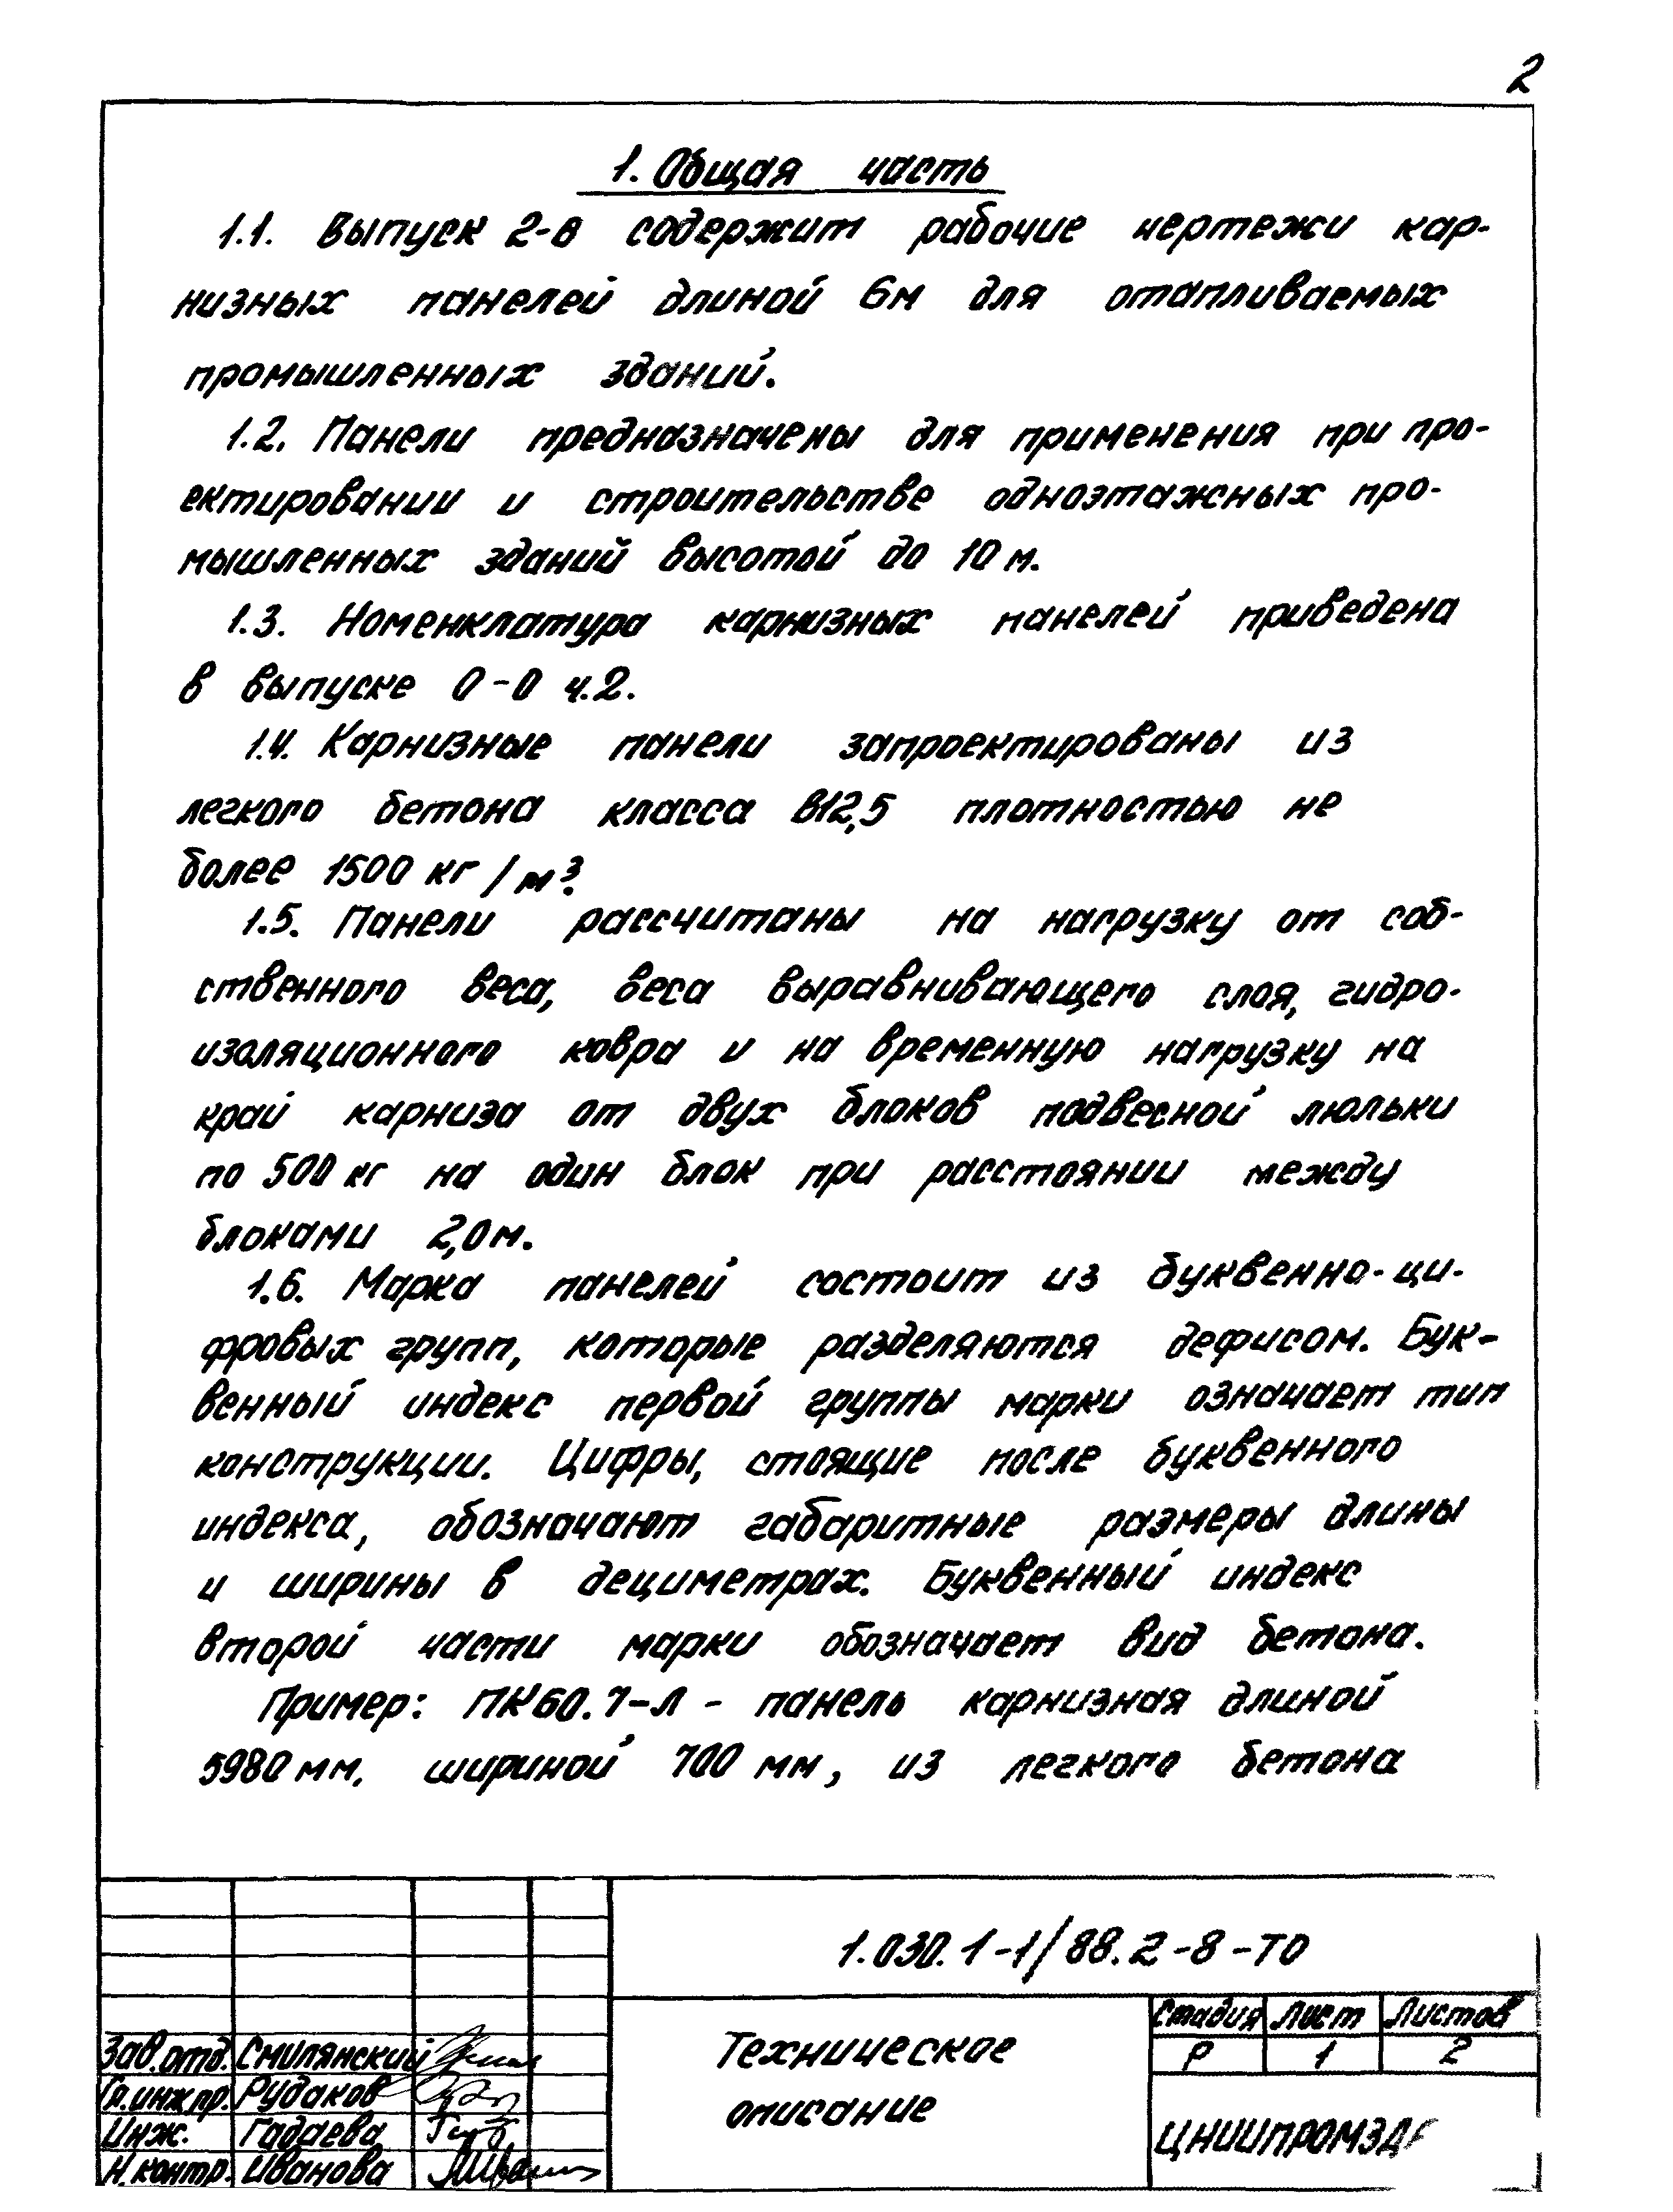 2
1. Общая часть
1.1. Выпуск 2-8 содержит рабочие чертежи кар-
низных панелей длиной 6м для отапливаемых
промышленных зданий.
1.2. Панели предназначены для применения при про-
ектировании и строительстве одноэтажных про-
мышленных зданий высотой до 10 м.
1.3. Номенклатура карнизных панелей приведена
в выпуске 0-0 ч.2.
1.4. Карнизные панели запроектированы из
легкого бетона класса В12,5 плотностью не
более 1500 кг/м³.
1.5. Панели рассчитаны на нагрузку от соб-
ственного веса, веса выравнивающего слоя, гидро-
изоляционного ковра и на временную нагрузку на
край карниза от двух блоков подвесной люльки
по 500 кг на один блок при расстоянии между
блоками 2,0м.
1.6. Марка панелей состоит из буквенно-ци-
фровых групп, которые разделяются дефисом. Бук-
венный индекс первой группы марки означает тип
конструкции. Цифры, стоящие после буквенного
индекса, обозначают габаритные размеры длины
и ширины в дециметрах. Буквенный индекс
второй части марки обозначает вид бетона.
Пример: ПК60.7-Л - панель карнизная длиной
5980 мм. шириной 700 мм, из легкого бетона
1.030.1-1/88.2-8-ТО
Зав.отд. Смилянский
Гл.инж.пр. Рудаков
Инж. Гадаева
Н.контр. Иванова
Техническое
описание
Стадия Лист Листов
Р 1 2